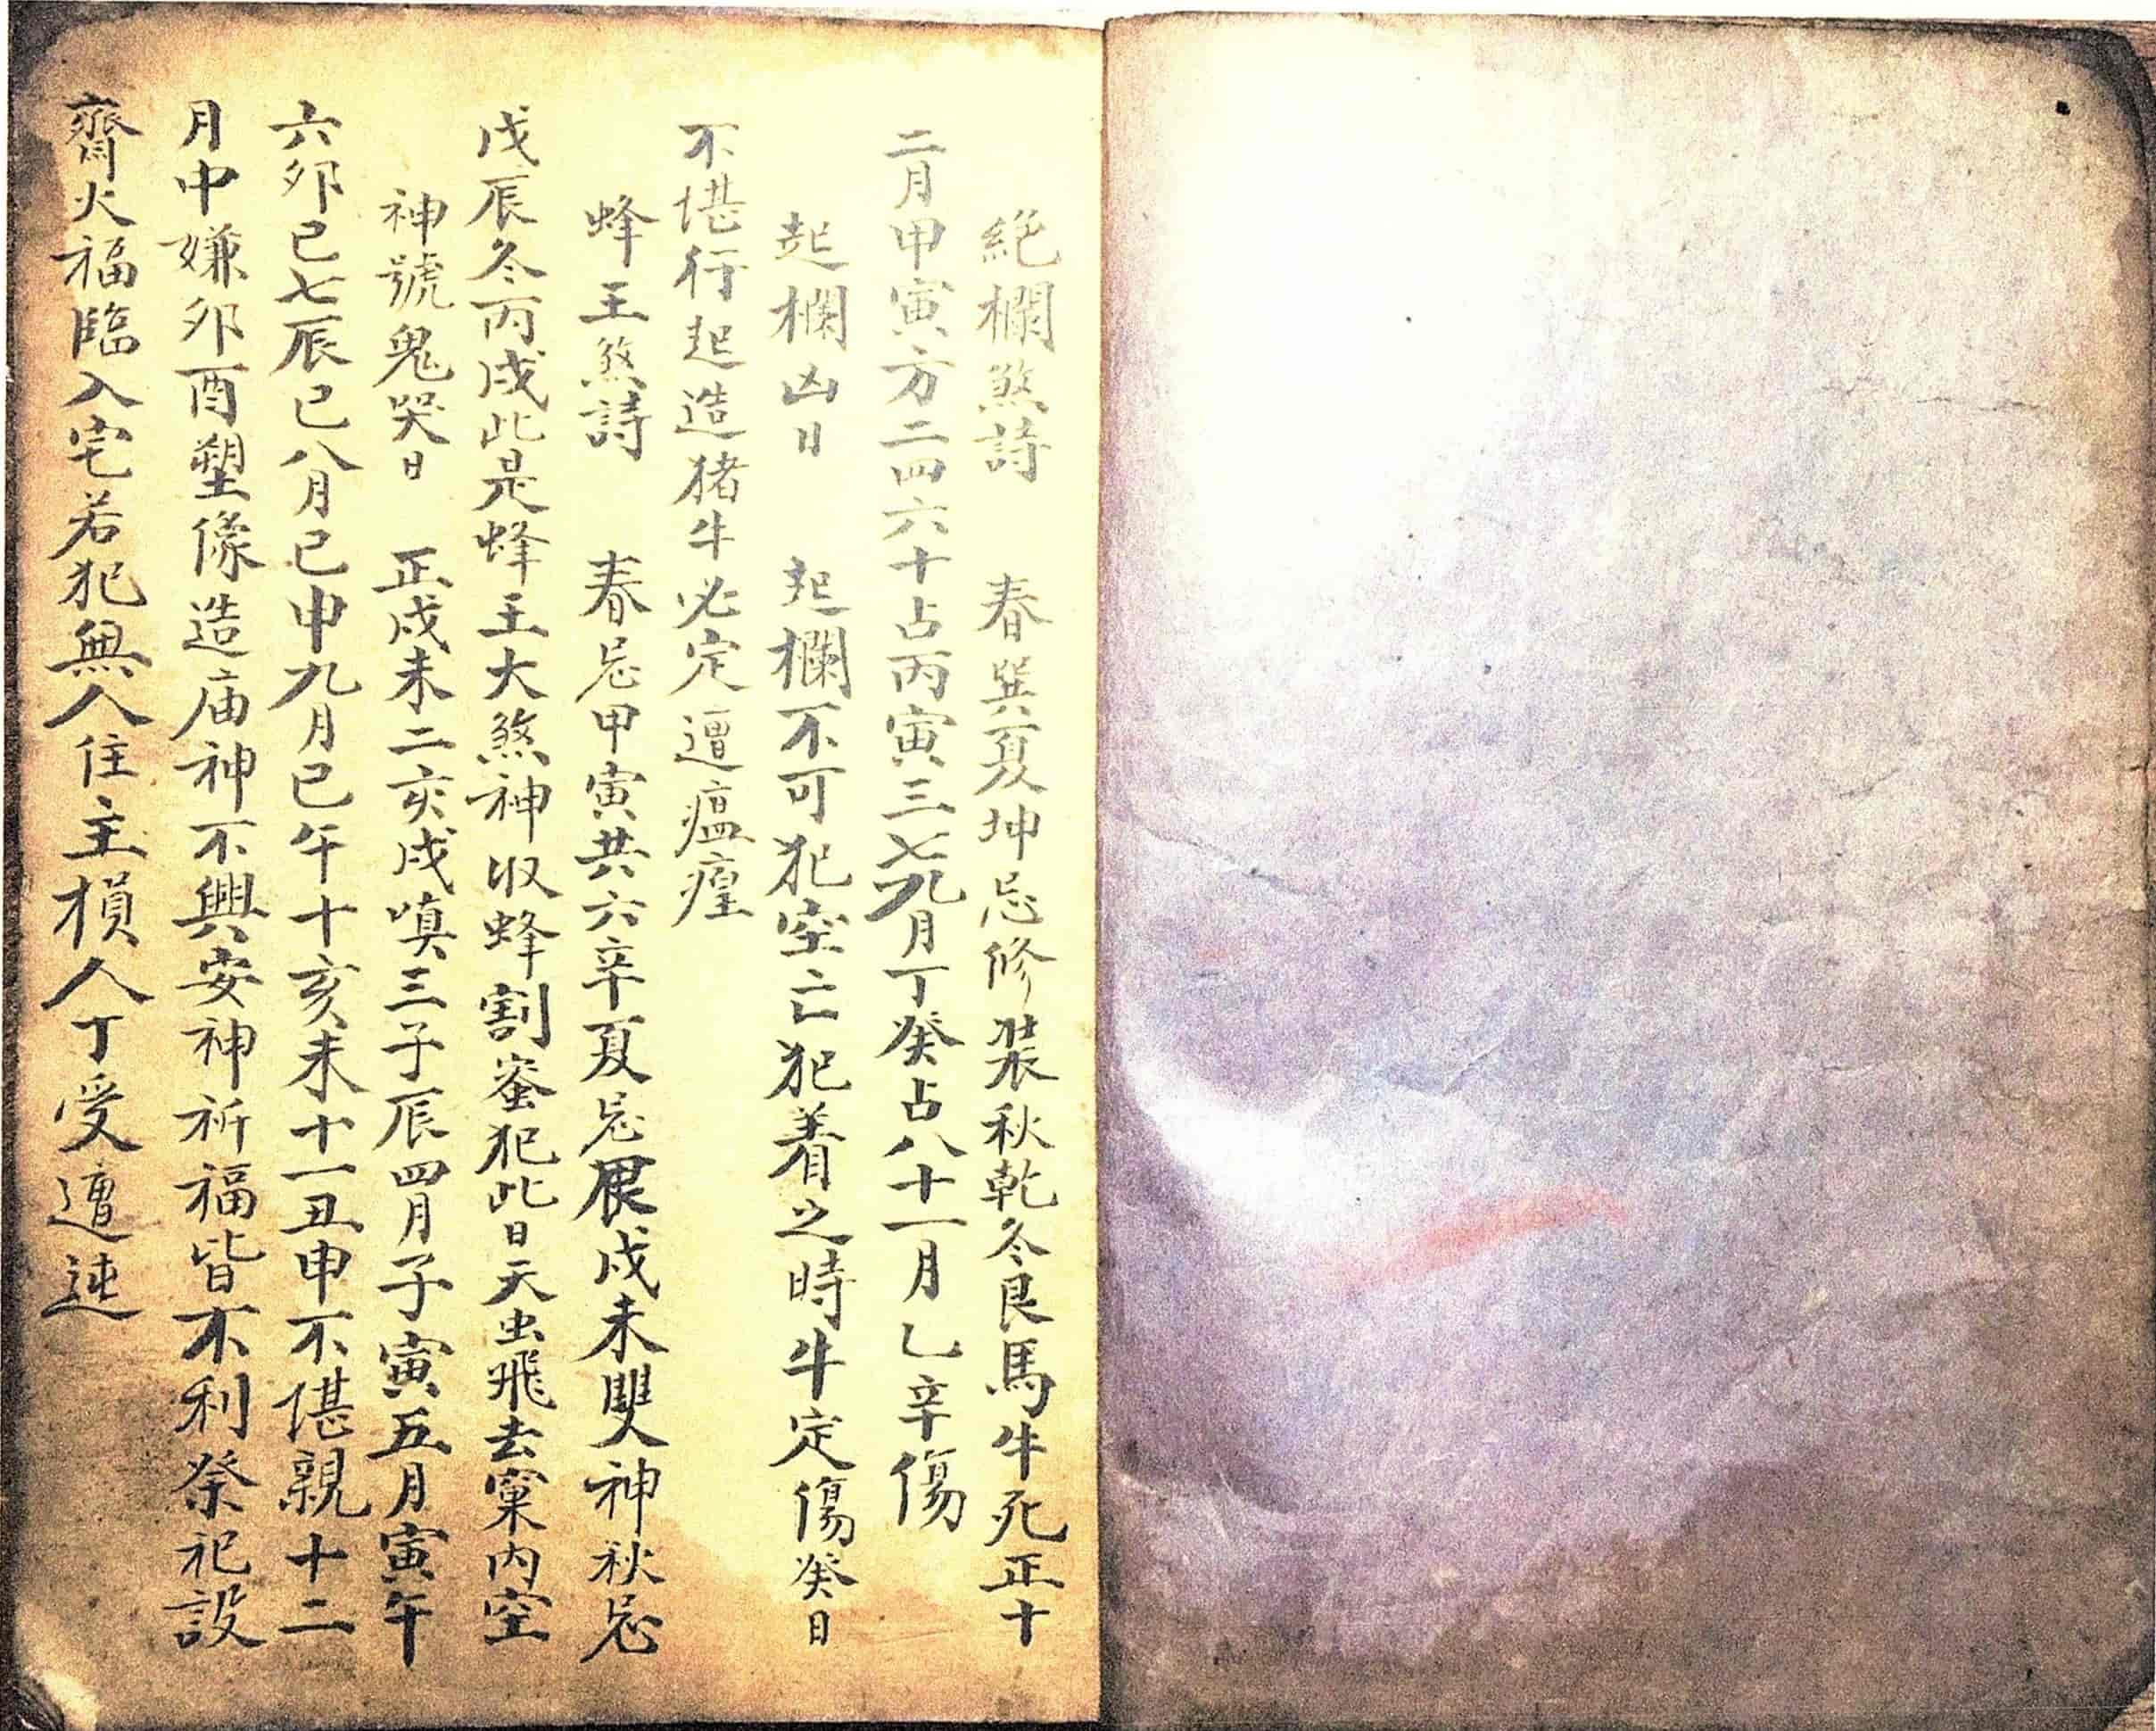 絶欄煞詩　春巽夏坤忌修裝秋乾冬艮馬牛死正十
二月甲寅方二四六十占丙寅三七九月丁癸占八十一月乙辛傷
起欄凶日　起欄不可犯空亡犯着之時牛定傷癸日
不堪行起造猪牛必定遭瘟癀
蜂王煞詩　春忌甲寅共六辛夏忌戊未雙神秋忌
戊辰冬丙戌此是蜂王大煞神收蜂割蜜犯此日天虫飛去窠内空
神號鬼哭日　正戌未二亥戌嗔三子辰四月子寅五月寅午
六卯巳七辰巳八月巳申九月巳午十亥未十一丑申不堪親十二
月中嫌卯酉塑像造庙神不興安神祈福皆不利祭祀設
齋火福臨入宅若犯無人住主損人丁受遭迍